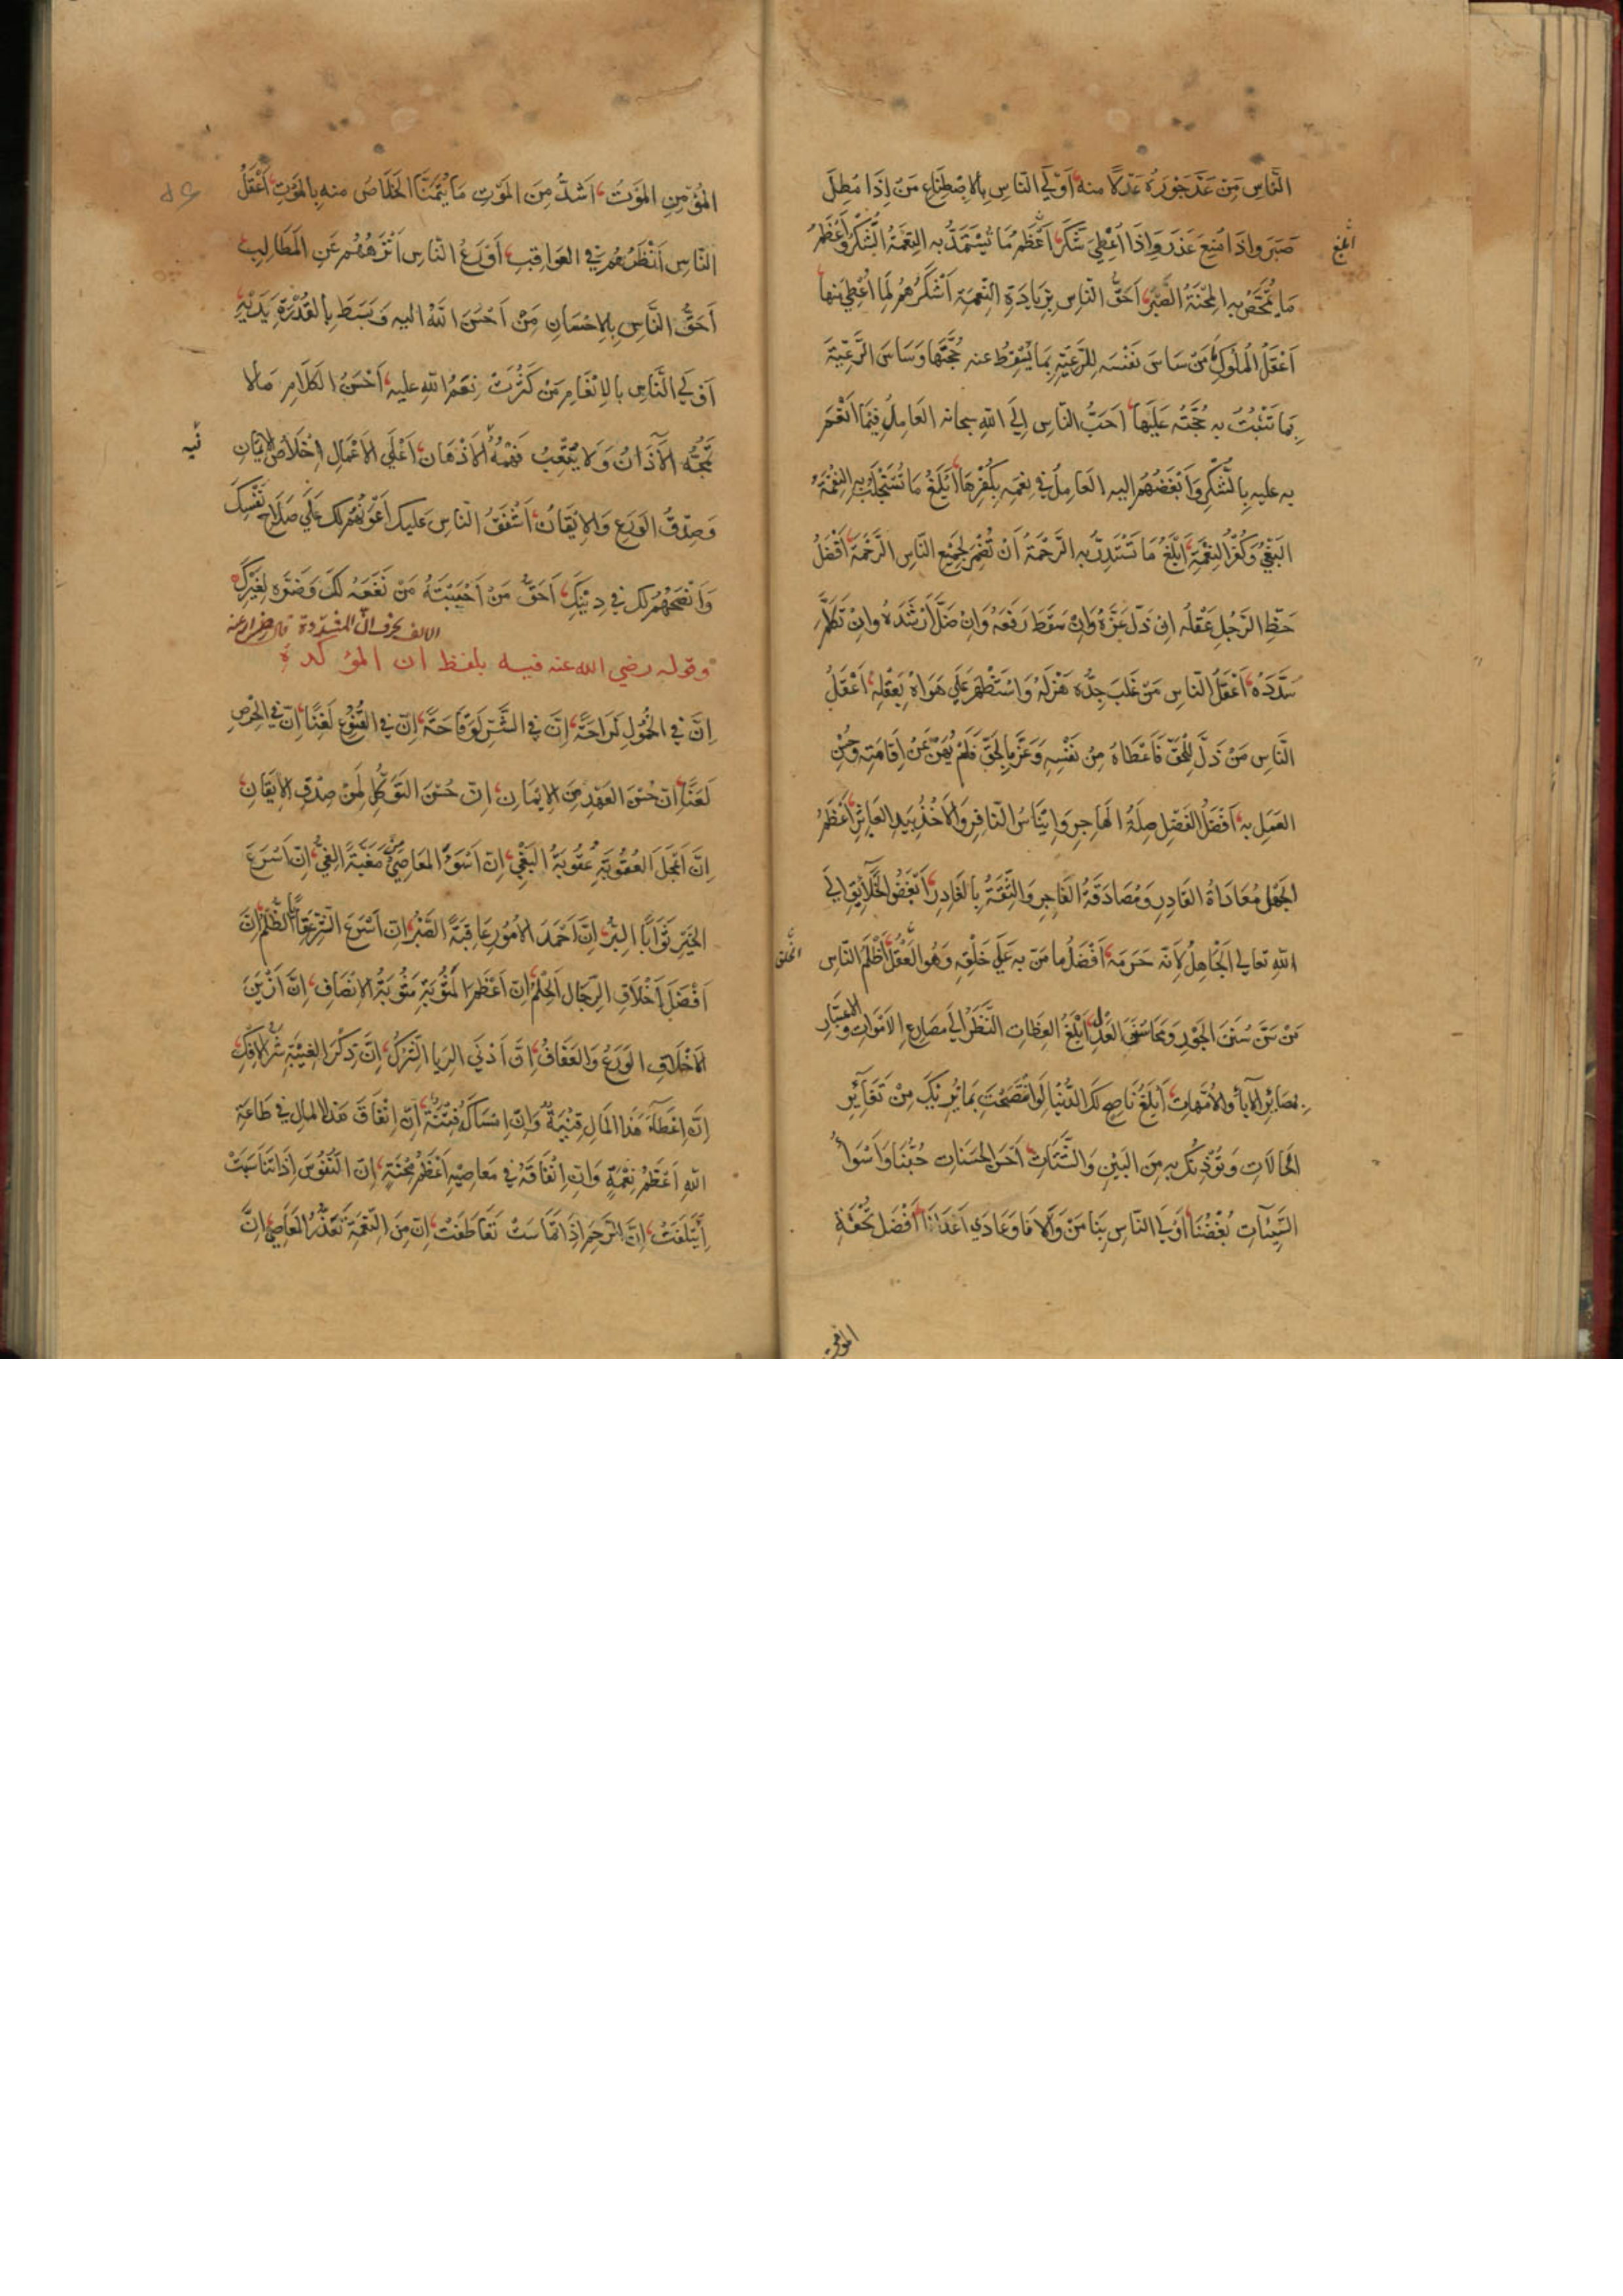 النَّاسِ مَنْ عَدَّ جَوْرَهُ عَدْلًا منه، اَوْلَي النّاسِ بِالاِصْطِنَاعِ مَنْ اِذَا مُطِلَ
صَبَرَ واِذَا مُنِعَ عَذَرَ وَاِذَا اُعْطِيَ شَكَرَ، اَعْظَمُ مَا تُسْتَمَدُّ به النِّعْمَةُ الشُّكْرُ وَاَعْظَمُ
مَا يُمَحَّصُ بِهِ المِحْنَةُ الصَّبْرُ، اَحَقُّ النّاسِ بِزِيَادَةِ النِّعْمَةِ اَشْكَرُهُمْ لِمَا اُعْطِيَ مِنها
اَعْقَلُ المُلُوكِ مَنْ سَاسَ نَفْسَه لِلرَّعِيَّةِ بِمَا يُسْقِطُ عنه حُجَّتَهَا وَسَاسَ الرَّعِيَّةَ
بِمَا تَثْبُتُ بِه حُجَّتُه عَلَيْهَا، اَحَبُّ النّاسِ اِلَي اللهِ سبحانه العَامِلُ فِيمَا اَنْعَمَ
بِه عليهِ بِالشُّكْرِ وَاَبْغَضُهُمْ اليه العَامِلُ فِي نِعَمِهِ بِكُفْرِهَا، اَبْلَغُ مَا تُسْتَجْلَبُ بِهِ النِّقْمَةُ
البَغْيُ وَكُفْرُ النِّعْمَةِ، اَبْلَغُ مَا تُسْتَدَرُّ بِه الرَّحْمَةُ اَنْ تُضْمِرَ لِجَمِيعِ النَّاسِ الرَّحْمَةَ، اَفْضَلُ
حَظِّ الرَّجُلِ عَقْلُه اِنْ ذَلَّ عَزَّهُ وَاِنْ سَقَطَ رَفَعَهُ وَاِنْ ضَلَّ اَرْشَدَهُ واِنْ تَكَلَّمَ
سَدَّدَهُ، اَعْقَلُ النّاسِ مَنْ غَلَبَ جِدُّه هَزْلَهُ وَاسْتَظْهَرَ عَلَي هَوَاهُ بِعَقْلِهِ، اَعْقَلُ
النَّاسِ مَنْ ذَلَّ لِلْحَقِّ فَاَعْطَاهُ مِنْ نَفْسِهِ وَعَزَّ بِالحَقِّ فَلَمْ يُهِنْ عَنْ اِقَامَتِهِ وَحُسْنِ
العَمَلِ بِهِ، اَفْضَلُ الفَضْلِ صِلَةُ الهَاجِرِ وَاِيْنَاسُ النّافِرِ وَالاَخْذُ بِيَدِ العَاثِرِ، اَعْظَمُ
الجَهْلِ مُعَادَاةُ القَادِرِ وَمُصَادَقَةُ الفَاجِرِ وَالثِّقَةُ بِالغَادِرِ، اَبْغَضُ الخَلَآئِقِ اِلَي
اللهِ تعالي الجَاهِلُ لِاَنّه حَرَمَهُ اَفْضَلُ مامَنَّ بِهِ عَلَي خَلْقِهِ وَهُوَ العَقْلُ، اَظْلَمُ النّاسِ
مَنْ سَنَّ سُنَنَ الجَوْرِ وَمَحَا سُنَنَ العَدْلِ، اَبْلَغُ العِظَاتِ النَّظَرُ اِلَي مَصَارِعِ الاَمْوَاتِ والاعْتِبَار
بِمَصَائِرِ الآبآءِ والاُمَّهَاتِ، اَبْلَغُ نَاصِحٍ لَكَ الدُّنْيَا لَوِ انْتَصَحْتَ بِمَا تُرِيْكَ مِنْ تَغَايُرِ
الحَالَاتِ وَتُؤْذِنُكَ بِهِ مِنَ البَيْنِ وَالشَّتَاتِ، اَحْسَنُ الحَسَنَاتِ حُبُّنَا وَاَسْوَأُ
السَّيِّئَاتِ بُغْضُنَا، اَوْلَي النّاسِ بِنَا مَنْ وَالَانَا وَعَادَي اَعْدَاءَنَا، اَفْضَلُ تُحْفَةِ
المُؤْمِنِ المَوْتُ، اَشَدُّ مِنَ المَوْتِ مَا يُتَمَنَّا الخَلَاصُ منه بِالمَوْتِ، اَعْقَلُ
النّاسِ اَنْظَرُهُمْ فِي العَوَاقِبِ، اَوْرَعُ النّاسِ اَنْزَهُهُمْ عَنِ المَطَالِبِ،
اَحَقُّ النَّاسِ بِالاِحْسَانِ مَنْ اَحْسَنَ اللهُ اليه وَبَسَطَ بِالقُدْرَةِ يَدَيْهِ،
اَوْلَي النَّاسِ بِالاِنْعَامِ مَنْ كَثُرَتْ نِعَمُ اللهِ عليه، اَحْسَنُ الكَلَامِ مَالا
تَمُجُّه الآذَانُ وَلَا يُتْعِبُ فَهْمُهُ الاَذْهَانَ، اَعْلَي الاَعْمَالِ اِخْلَاصُ الاِيْمَانِ
وَصِدْقُ الوَرَعِ وَالاِيْقَانُ، اَشْفَقُ النّاسِ عَلَيك اَعْوَنُهُمْ لك عَلَي صَلَاحِ نَفْسِكَ
وَاَنْصَحُهُمْ لك فِي دِيْنِكَ، اَحَقُّ مَنْ اَحْبَبْتَهُ مَنْ نَفْعُهُ لَكَ وَضَرُّهُ لِغَيْرِكَ
وقوله رضي الله عنه فيه بلفظ ان المؤكدة
اِنَّ فِي الخُمُولِ لَرَاحَةً، اِنَّ فِي الشَّرِّ لَوَقَاحَةً، اِنَّ فِي القُنُوعِ لَغِنًا، اِنَّ فِي الحِرْصِ
لَعَنًا، اِنّ حُسْنَ العَهْدِ مِنَ الاِيْمَانِ، اِنّ حُسْنَ التَّوَكُّلِ لَمِنْ صِدْقِ الاِيْقَانِ
اِنَّ اَعْجَلَ العُقُوبَةِ عُقُوبَةُ البَغْيِ، اِنّ اَسْوَأَ المَعَاصِي مَغَبَّةً الغَيُّ، اِنّ اَسْرَعَ
الخَيْرِ ثَوَابًا البِرُّ، اِنَّ اَحْمَدَ الاُمُورِ عَاقِبَةً الصَّبْرُ، اِنّ اَسْرَعَ الشَّرِّ عِقَابًا الظُّلْمُ، اِنَّ
اَفْضَلَ اَخْلَاقِ الرِّجَالِ الحِلْمُ، اِنّ اَعْظَمَ المَثُوبَةِ مَثُوبَةُ الاِنْصَافِ، اِنَّ اَزْيَنَ
الاَخْلَاقِ الوَرَعُ وَالعَفَافُ، اِنّ اَدْنَي الرِيَا الشِّرْكُ، اِنَّ ذِكْرَ الغِيْبَةِ شَرُّ الاِفْكِ
اِنّ اِعْطَآءَ هَذَا المَالِ قِنْيَةٌ وَاِنّ اِمْسَاكَهُ فِتْنَةٌ، اِنّ اِنْفَاقَ هَذَا المالِ فِي طَاعَةِ
اللهِ اَعْظَمُ نِعْمَةٍ وَاِنّ اِنْفَاقَهُ فِي مَعَاصِيْهِ اَعْظَمُ مِحْنَةٍ، اِنّ النُّفُوسَ اِذَا تَنَاسَبَتْ
اِئْتَلَفَتْ، اِنَّ الرَّحِمَ اِذَا تَمَاسَتْ تَعَاطَفَتْ، اِنّ مِنَ النِّعْمَةِ تَعَذُّرَ المَعَاصِي، اِنَّ